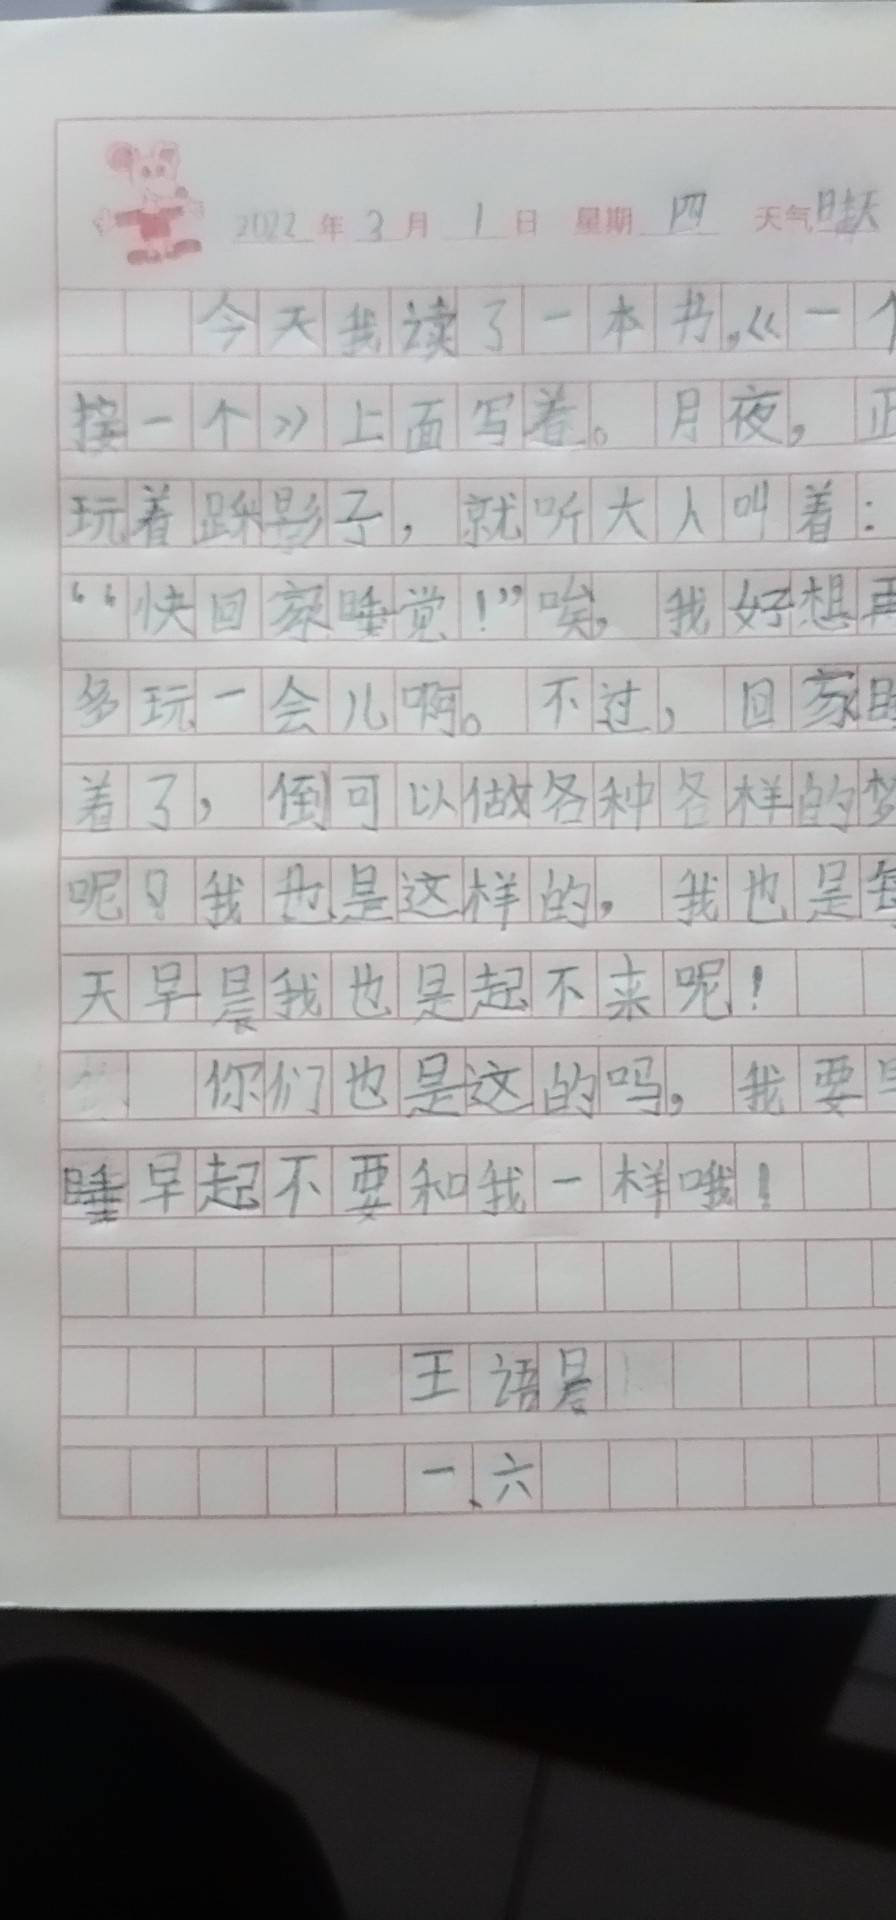 2022年3月1日 星期四 天气
今天我读了一本书,《一个
接一个》上面写着。月夜，正
玩着踩影子，就听大人叫着：
“快回家睡觉！”唉，我好想再
多玩一会儿啊。不过，回家睡
着了，倒可以做各种各样的梦
呢？我也是这样的，我也是每
天早晨我也是起不来呢！
你们也是这的吗，我要早
睡早起不要和我一样哦！
王语晨
一、六